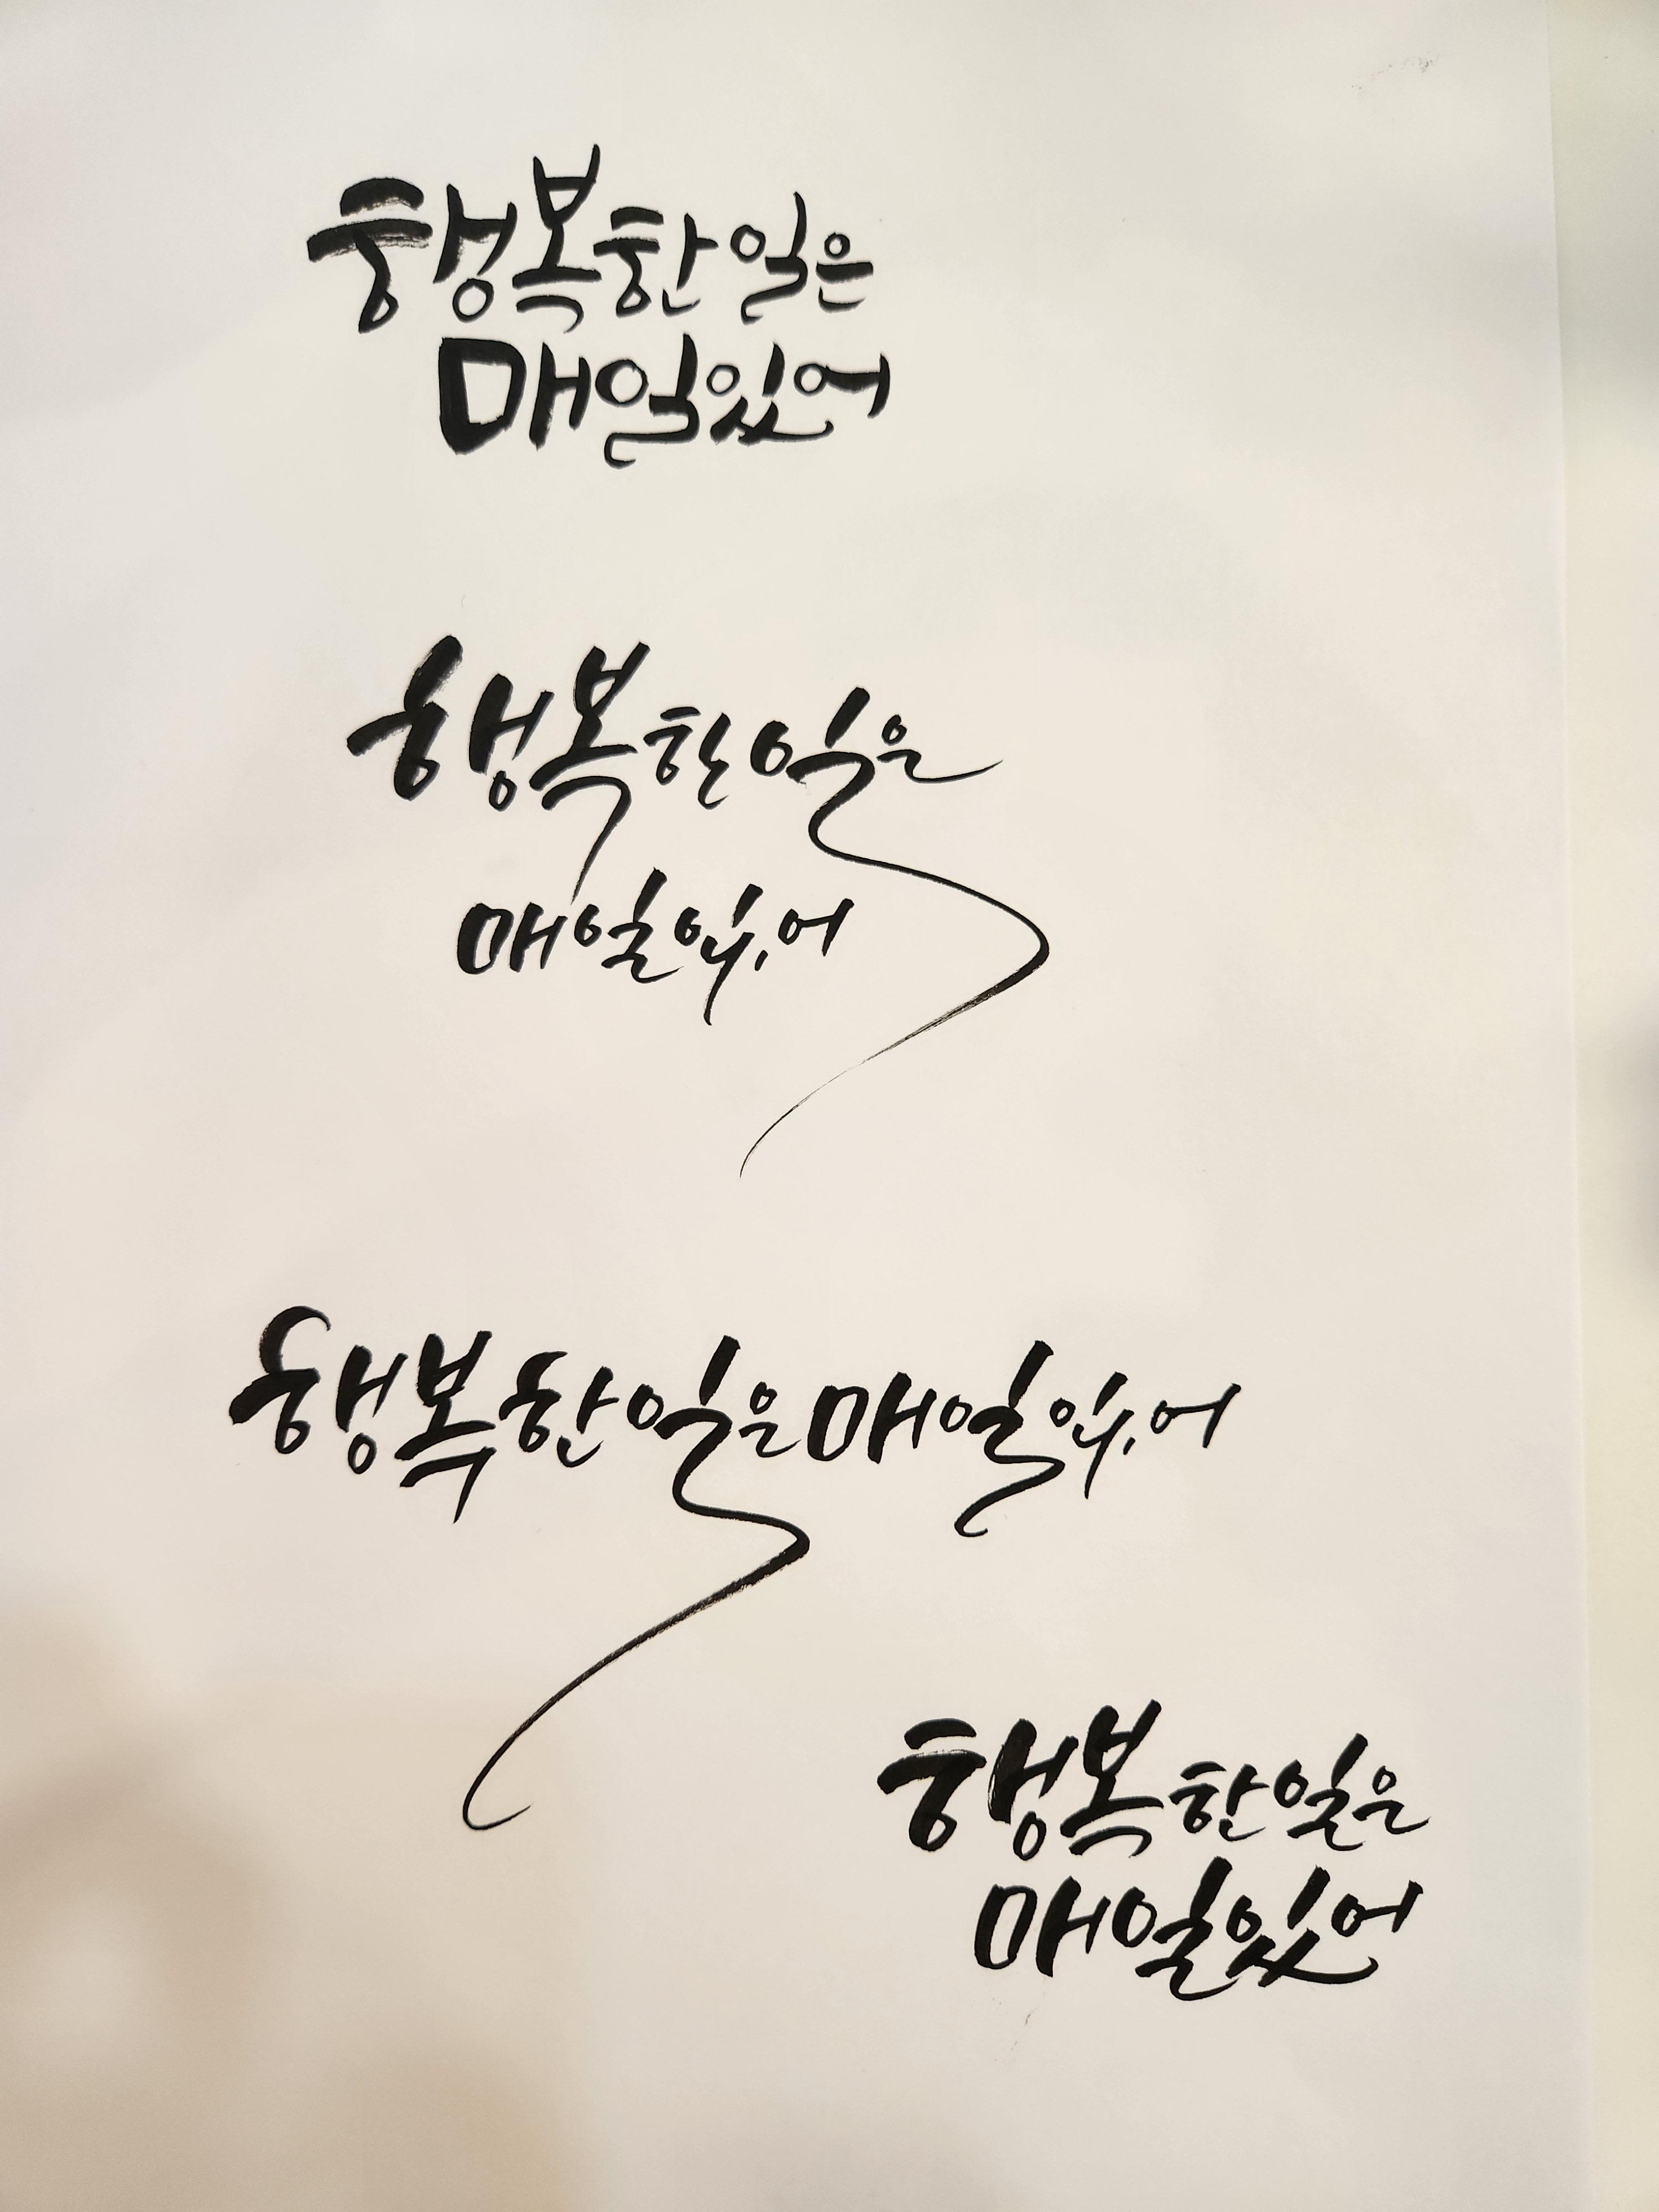 행복한 일은
매일있어
행복한 일은
매일있어
행복한일은매일있어
행복한일은
매일있어